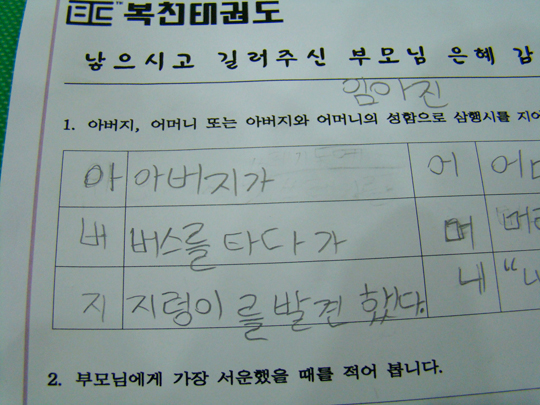 복천태권도
낳으시고 길러주신 부모님 은혜 갚
임아진
1. 아버지, 어머니 또는 아버지와 어머니의 성함으로 삼행시를 지어
아 아버지가 어 어머
버 버스를 타다가 머 머리
지 지렁이를 발견했다. 내 "내
2. 부모님에게 가장 서운했을 때를 적어 봅니다.